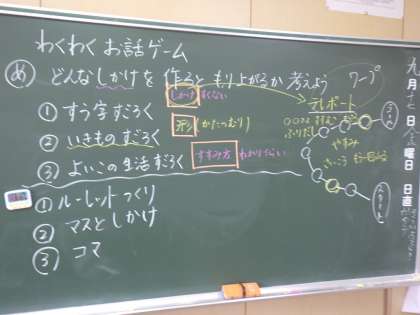 わくわく お話ゲーム
め どんなしかけを 作ると もり上がるか 考えよう
ワープ
しかけ すくない
テレポート
① すう字 すごろく
② いきもの すごろく
(かたつむり)
ふりだし
やすみ
③ よいこの生活 すごろく
すすみ方 わかりづらい
① ルーレットつくり
② マスとしかけ
③ コマ
ゴール
スタート
九月
日
曜日
日直